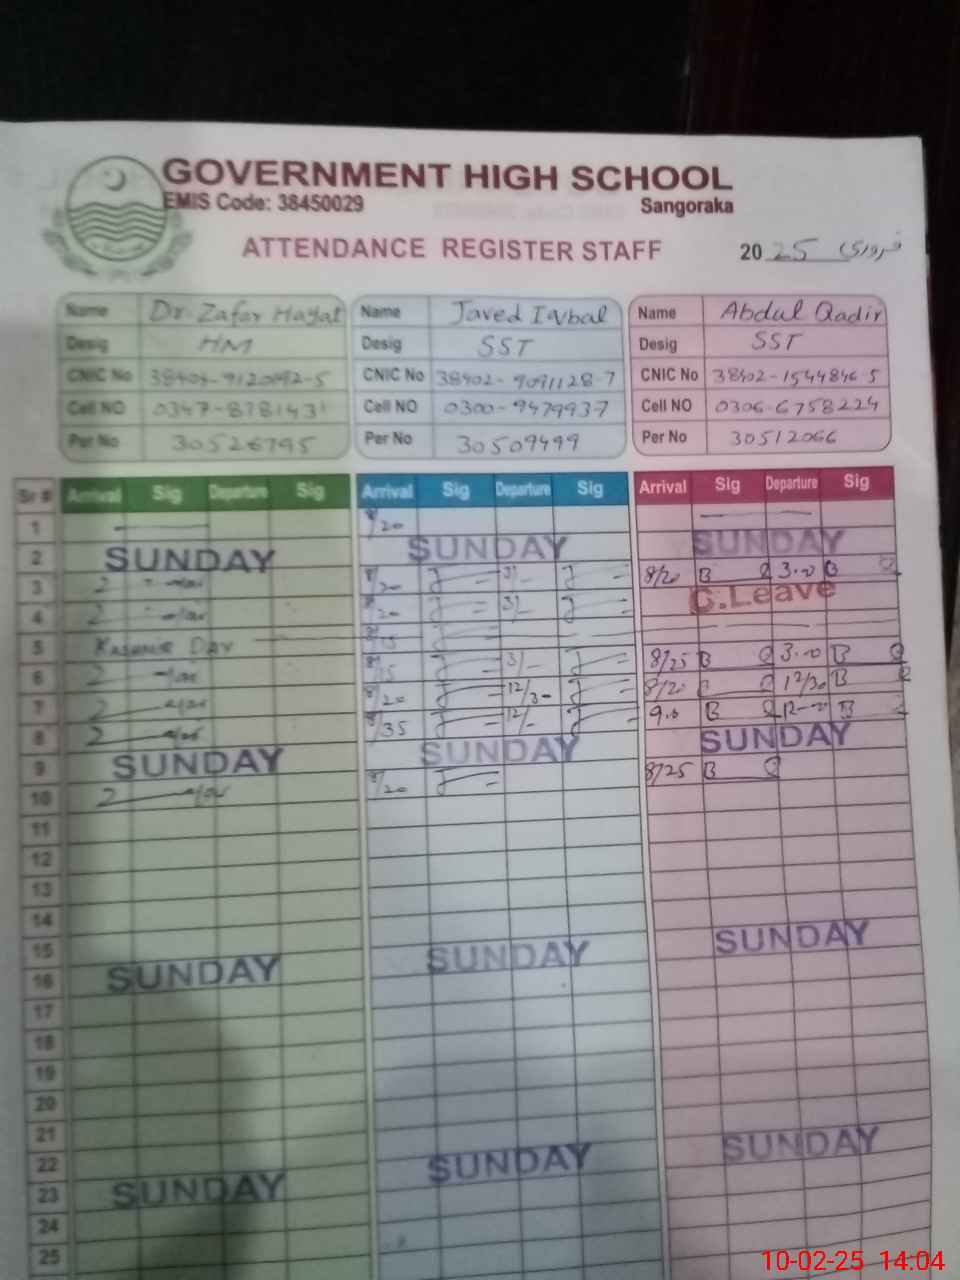 GOVERNMENT HIGH SCHOOL
EMIS Code: 38450029 Sangoraka
ATTENDANCE REGISTER STAFF 2025 فروری
Name Dr. Zafar Hayat Name Javed Iqbal Name Abdul Qadir
Desig HM Desig SST Desig SST
CNIC No CNIC No 38402-9091128-7 CNIC No 38402-1544846-5
Cell NO 0347-8781431 Cell NO 0300-9479937 Cell NO 0306-6758224
Per No 30526795 Per No 30509499 Per No 30512066
Sr # Arrival Sig Departure Sig Arrival Sig Departure Sig Arrival Sig Departure Sig
1 8/20
2 SUNDAY SUNDAY SUNDAY
3 8/20 3/- 8/20 3.00
4 8/20 3/- C.Leave
5 Kashmir Day
6 8/15 3/- 8/25 3.00
7 8/20 12/30 8/20 12/30
8 8/35 12/- 9.0 12-00
9 SUNDAY SUNDAY SUNDAY
10 8/20 8/25
11
12
13
14
15
16 SUNDAY SUNDAY SUNDAY
17
18
19
20
21
22
23 SUNDAY SUNDAY SUNDAY
24
25
10-02-25 14:04